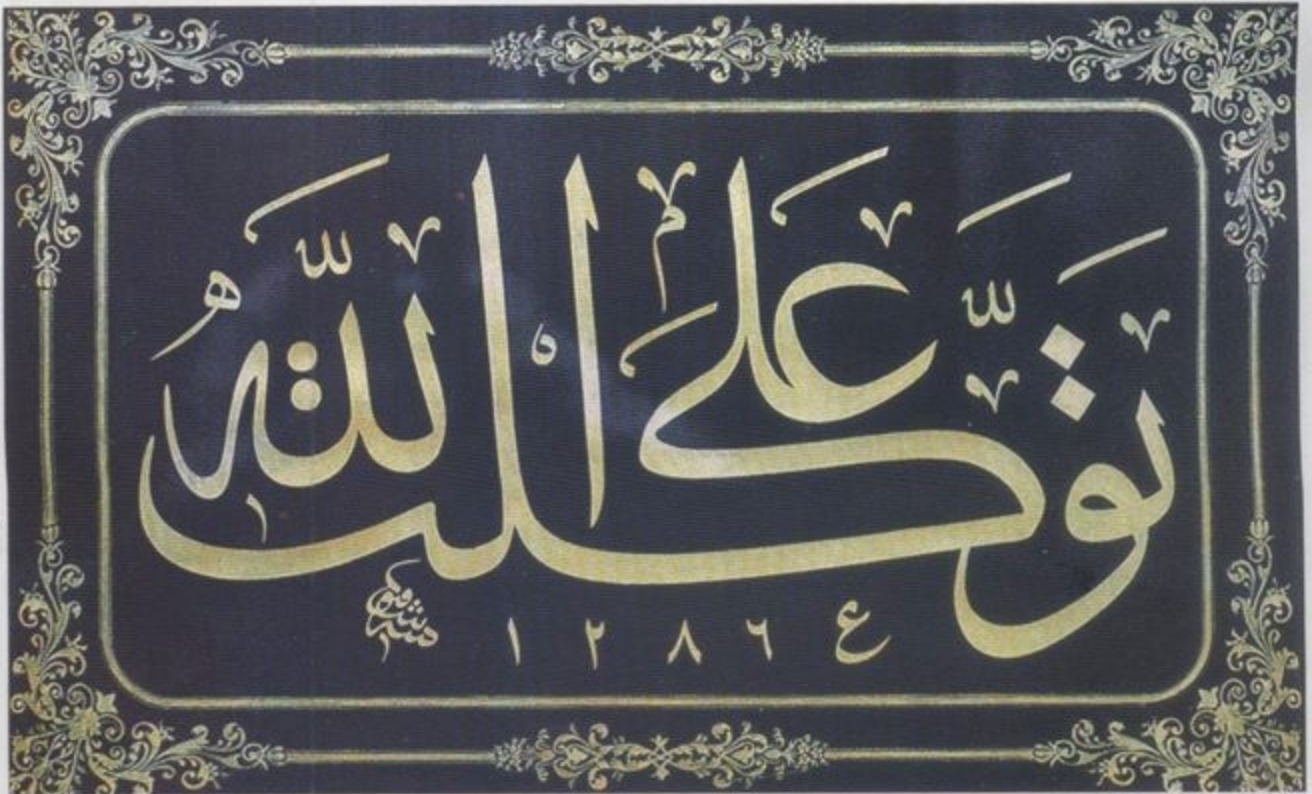 توكلت على الله
١٢٨٦